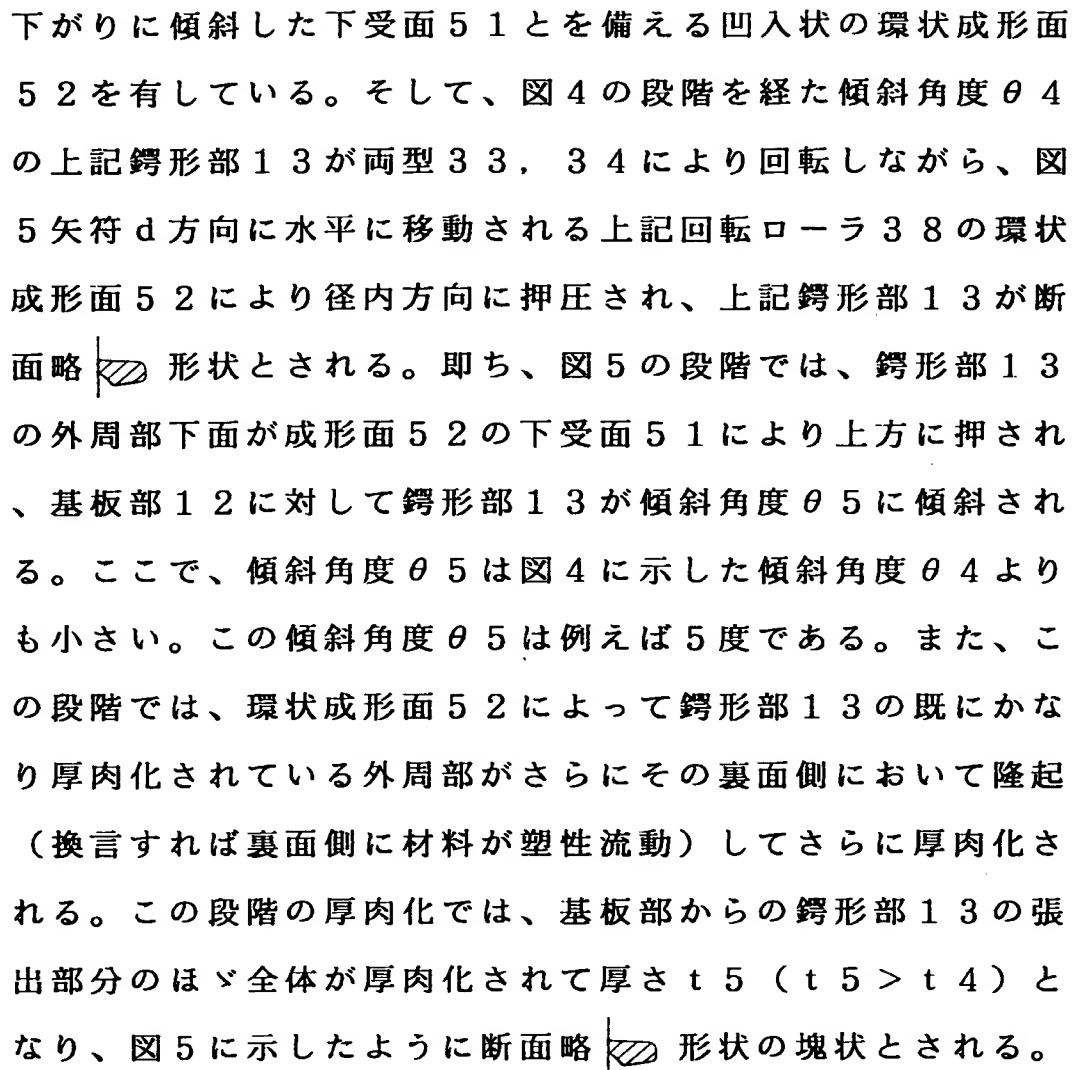 下がりに傾斜した下受面５１とを備える凹入状の環状成形面
５２を有している。そして、図４の段階を経た傾斜角度θ４
の上記鍔形部１３が両型３３，３４により回転しながら、図
５矢符ｄ方向に水平に移動される上記回転ローラ３８の環状
成形面５２により径内方向に押圧され、上記鍔形部１３が断
面略 形状とされる。即ち、図５の段階では、鍔形部１３
の外周部下面が成形面５２の下受面５１により上方に押され
、基板部１２に対して鍔形部１３が傾斜角度θ５に傾斜され
る。ここで、傾斜角度θ５は図４に示した傾斜角度θ４より
も小さい。この傾斜角度θ５は例えば５度である。また、こ
の段階では、環状成形面５２によって鍔形部１３の既にかな
り厚肉化されている外周部がさらにその裏面側において隆起
（換言すれば裏面側に材料が塑性流動）してさらに厚肉化さ
れる。この段階の厚肉化では、基板部からの鍔形部１３の張
出部分のほゞ全体が厚肉化されて厚さｔ５（ｔ５＞ｔ４）と
なり、図５に示したように断面略 形状の塊状とされる。